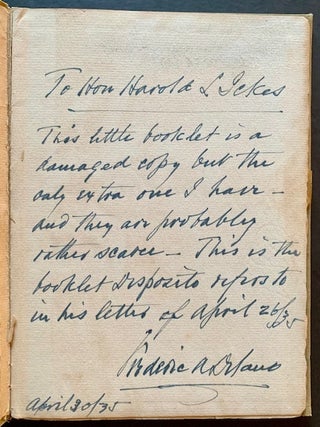 To Hon Harold L. Ickes
This little booklet is a
damaged copy but the
only extra one I have –
and they are probably
rather scarce – This is the
booklet Desposito refers to
in his letter of April 26/35
Frederic A. Delano
April 30/35